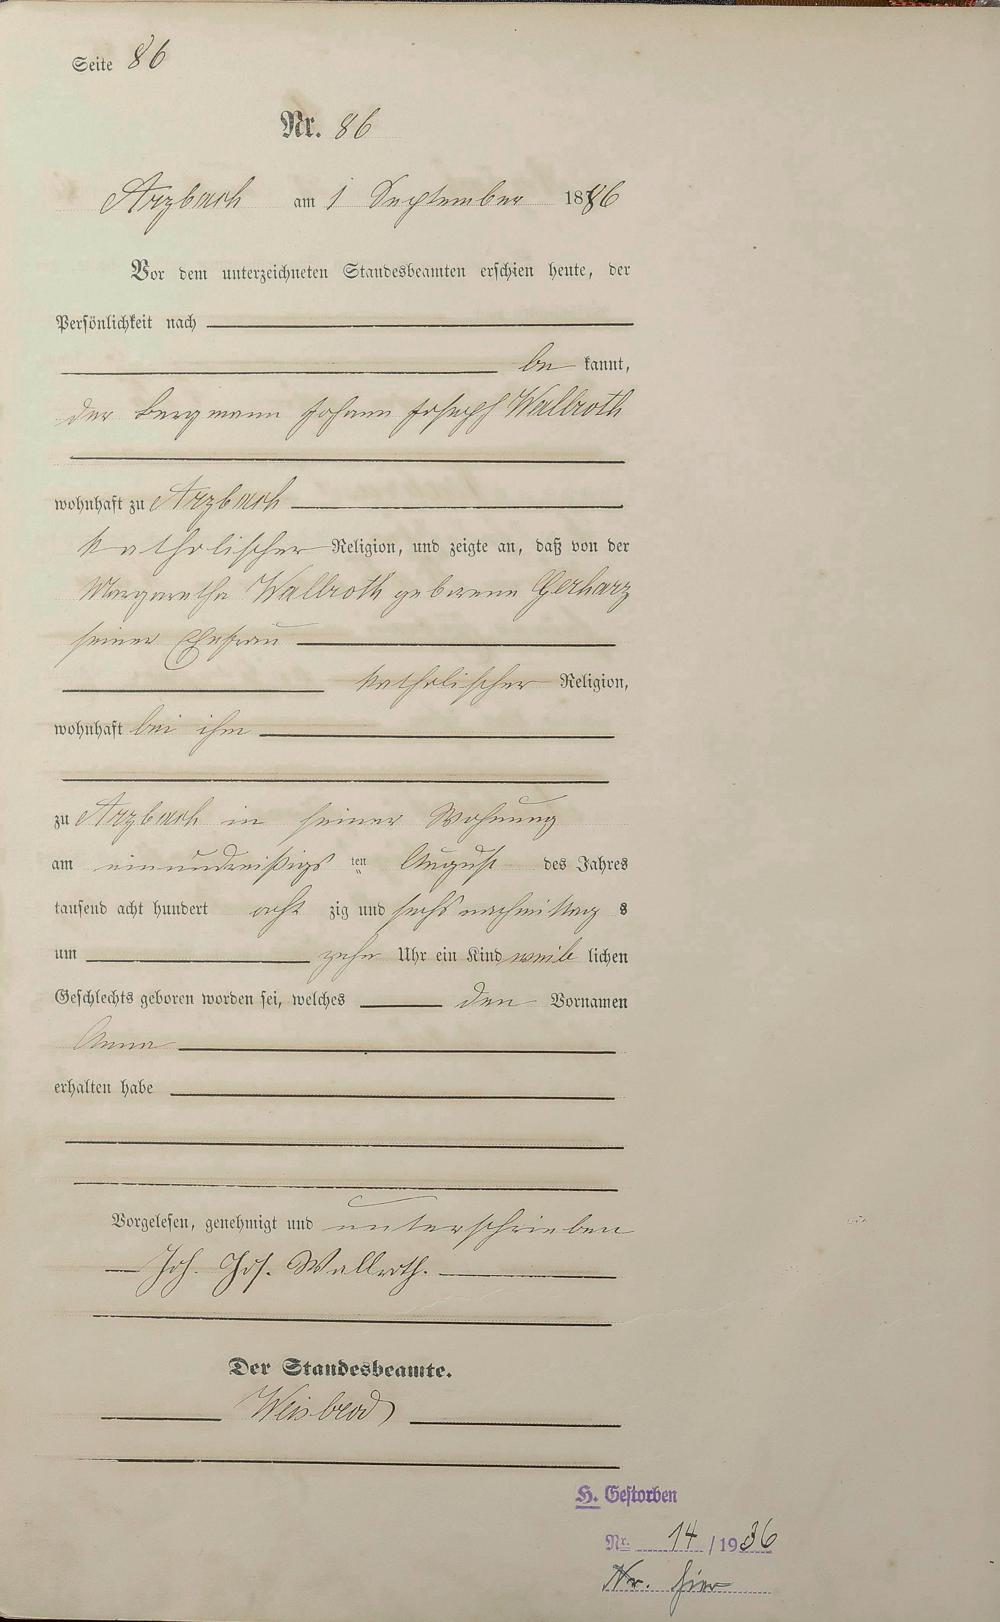 Seite 86
Nr. 86
Arzbach am 1 September 1886
Vor dem unterzeichneten Standesbeamten erschien heute, der
Persönlichkeit nach
be kannt,
der Bergmann Johann Joseph Wallroth
wohnhaft zu Arzbach
katholischer Religion, und zeigte an, daß von der
Margaretha Wallroth geborene Gerharz
seiner Ehefrau
katholischer Religion,
wohnhaft bei ihm
zu Arzbach in seiner Wohnung
am einunddreißigs ten August des Jahres
tausend acht hundert acht zig und sechs nachmittag s
um zehn Uhr ein Kind weib lichen
Geschlechts geboren worden sei, welches den Vornamen
Anna
erhalten habe
Vorgelesen, genehmigt und unterschrieben
Joh. Jos. Wallroth.
Der Standesbeamte.
Weisbrod
H. Gestorben
Nr. 14 / 1936
Nr. hier